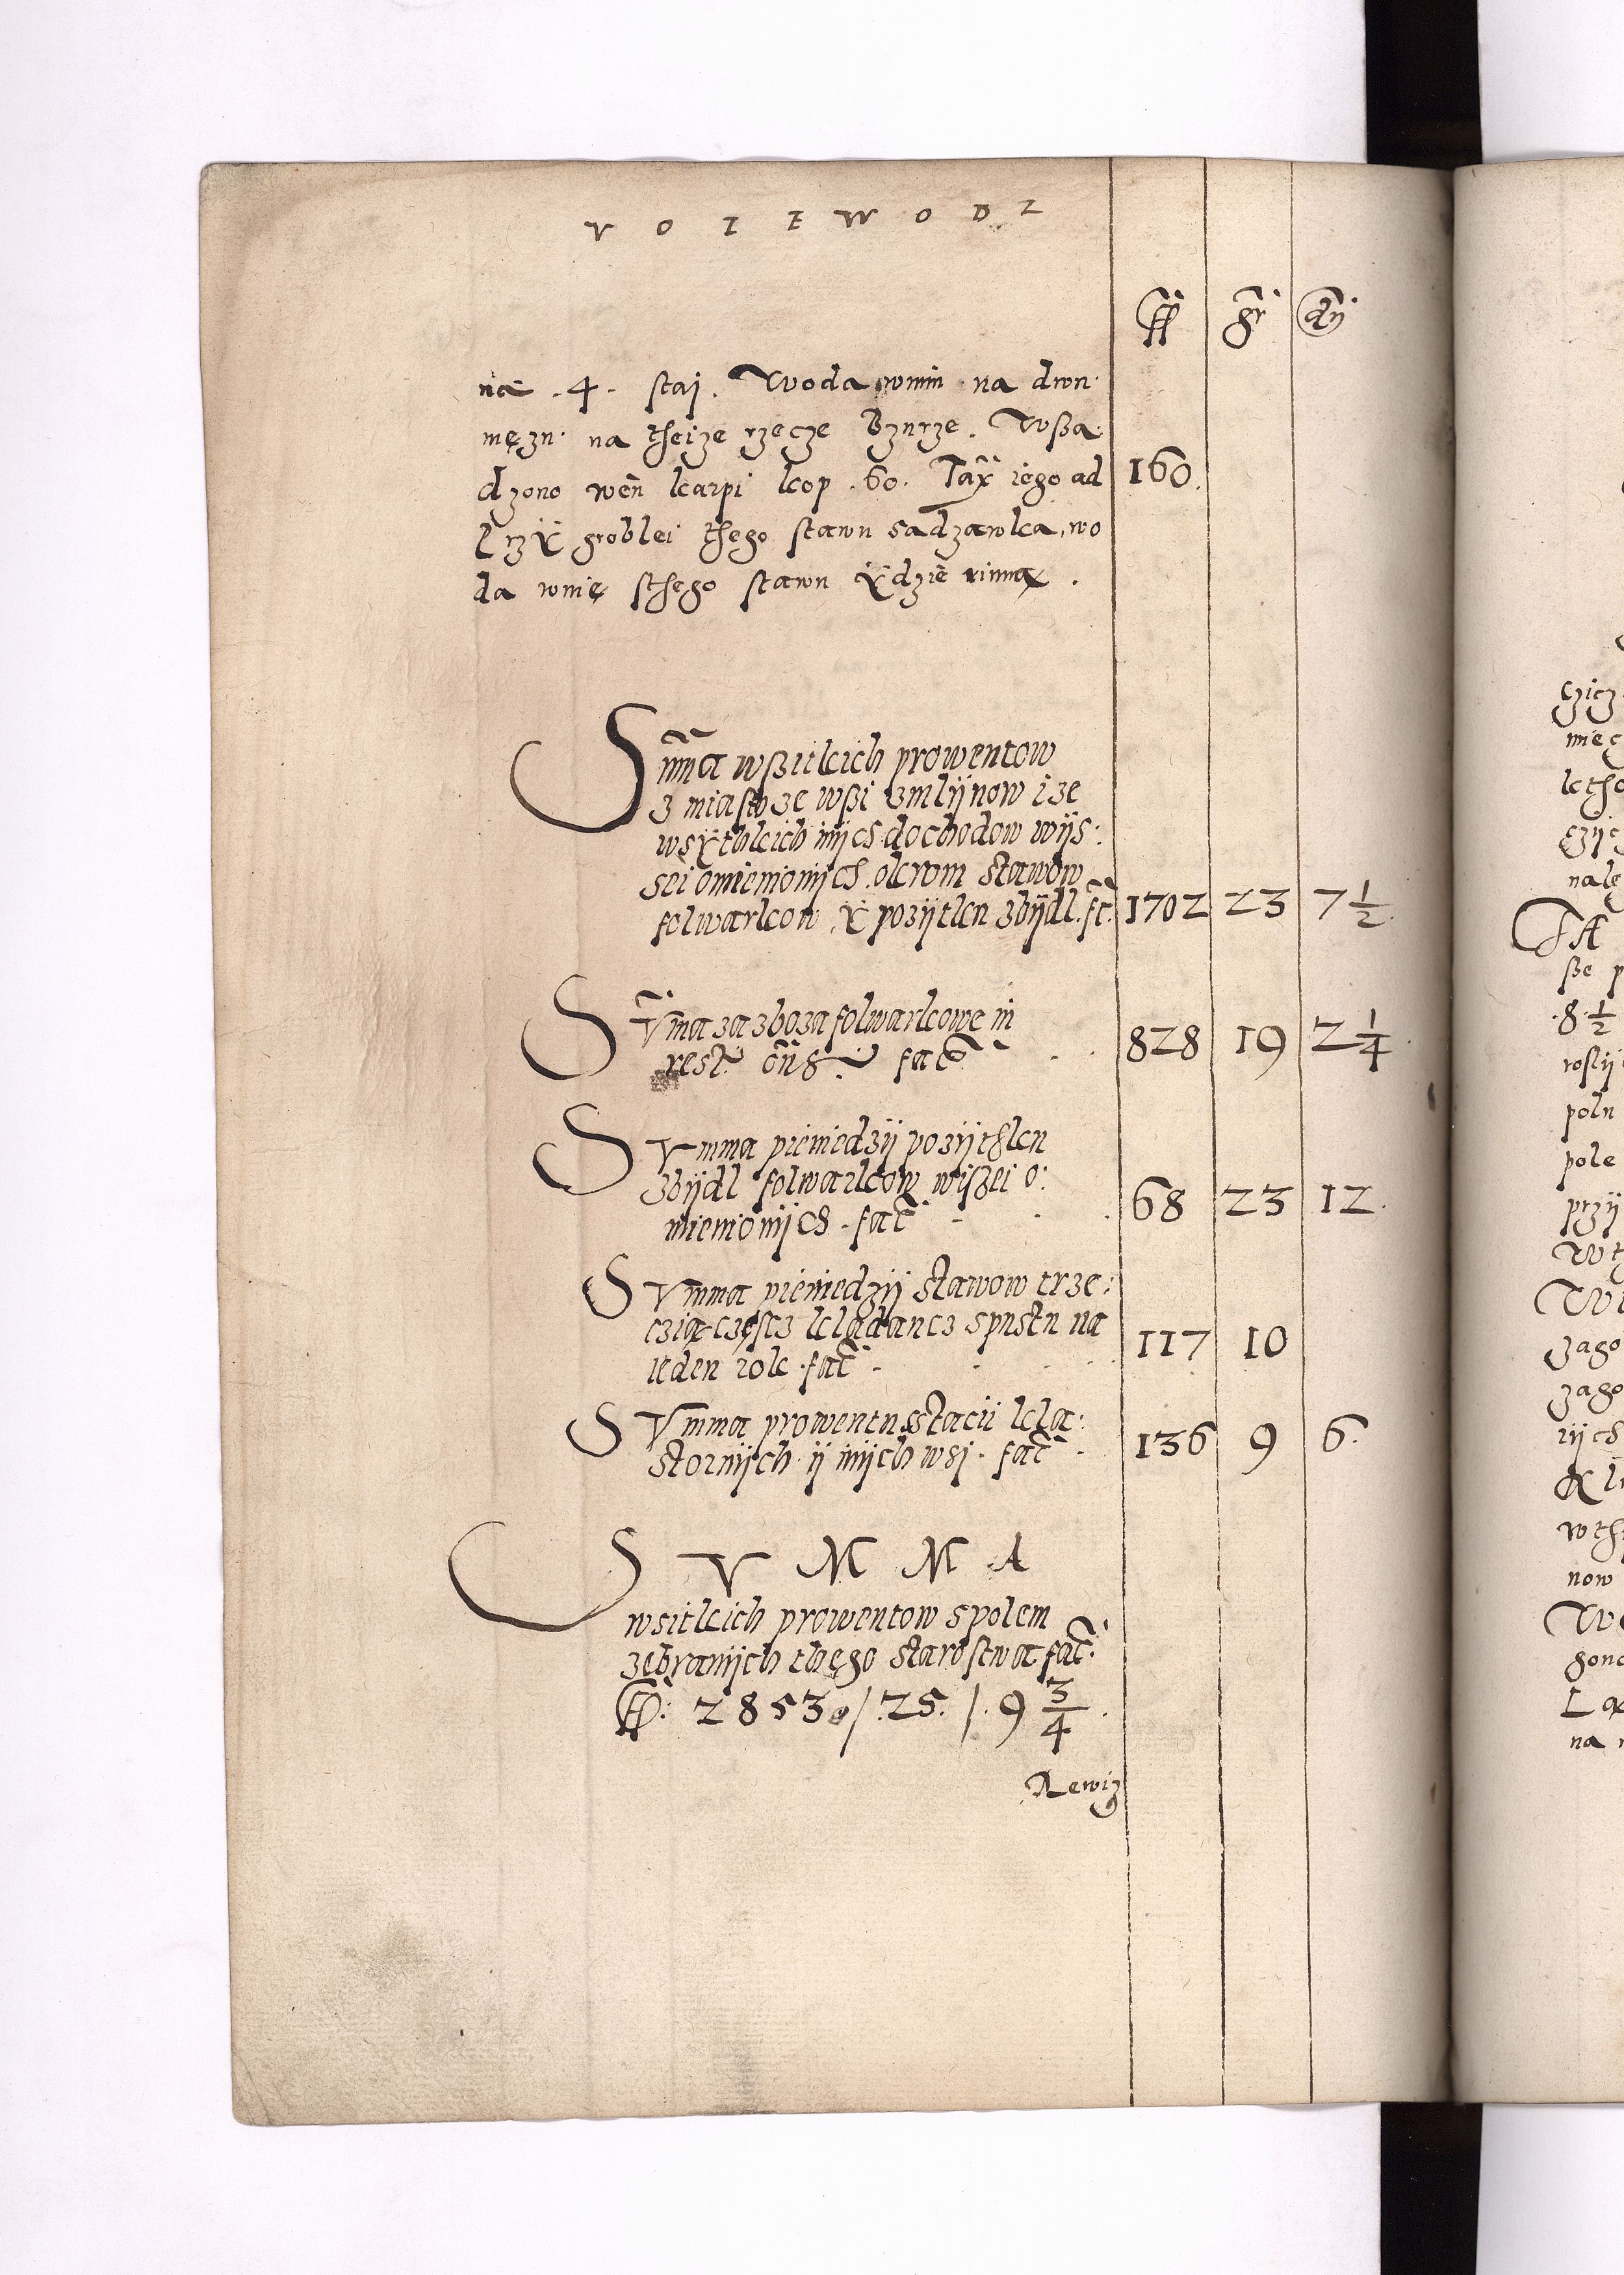 V O I E W O D Z
fl gr dn
na . 4 . staj . Woda wnim na dwu
męzu na theize rzecze Bzurze . Wßa
dzono wen karpi kop . 60 . Tax iego ad 160
Przÿ groblei thego stawu sadzawka, wo
da wnię sthego stawu ÿdzie rinną .
Summa wßitkich prowentow
z miast ze wßi zmlijnow i ze
wsÿthkich inijch dochodow wijs:
sei omienionijch . okrom stawow
folwarkow . ÿ pozijtku zbijdl . fc. 1702 23 7 1/2
Summa za zboza folwarkowe in
fac. 828 19 2 1/4
Vmma pieniedzij pozijthku
zbijdl folwarkow wijßei o:
mienionijch . fac 68 23 12 .
SVmma pieniedzij stawow trze:
czią częscz kladancz spustu na
ieden rok . fac . 117 10
SVmma prowentu sstacii kla:
stornijch ij inijch wsi . fac . 136 9 6 .
S V M M A
wsitkich prowentow spolem
zebranijch thego starostwa fac:
fl: 2853 / .25. / . 9 3/4 .
Rewiz
czicz
mię
ktho
czij
nale
TA
ße p
.8. 1/2
rosij
polu
pole
przij
W
zago
zago
rijch
wth
now
W
gono
na